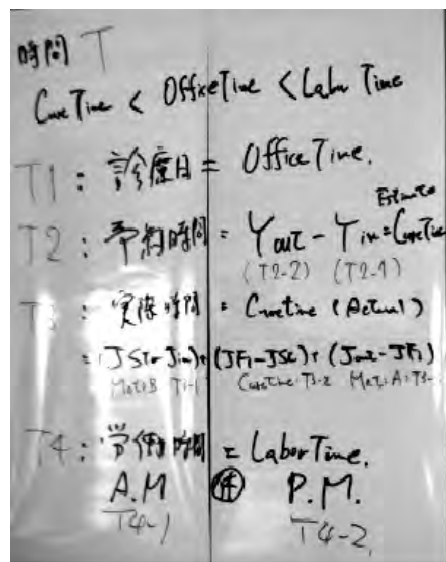 時間 T
Cure Time < Office Time < Labor Time
T1 : 診療日 = Office Time.
Estimate
T2 : 予約時間 = Yout - Yin = Cure Time
(T2-2) (T2-1)
T3 : 実際時間 = Curetime (Actual)
= (JStr Jin) + (JFi - JSt) + (Jout - JFi)
Mat:B T3-1 Curetime:T3-2 Mat:A:T3-
T4 : 労働時間 = Labor Time.
A.M P.M.
T4-1 T4-2